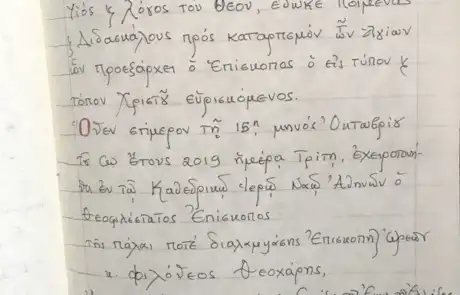 Υἱός ϗ Λόγος τοῦ Θεοῦ, ἔδωκε Ποιμένας
ϗ Διδασκάλους πρός καταρτισμόν τῶν Ἁγίων
ὧν προεξάρχει ὁ Ἐπίσκοπος ὁ εἰς τύπον ϗ
τόπον Χριστοῦ εὑρισκόμενος.
Ὅθεν σήμερον τῇ 15ῃ μηνός Ὀκτωβρίου
τοῦ ἔτους 2019 ἡμέρᾳ Τρίτῃ, ἐχειροτονή-
θη ἐν τῷ Καθεδρικῷ Ἱερῷ Ναῷ Ἀθηνῶν ὁ
Θεοφιλέστατος Ἐπίσκοπος
τῆς πάλαι ποτέ διαλαμψάσης Ἐπισκοπῆς Ὠρεῶν
κ. Φιλόθεος Θεοχάρης,